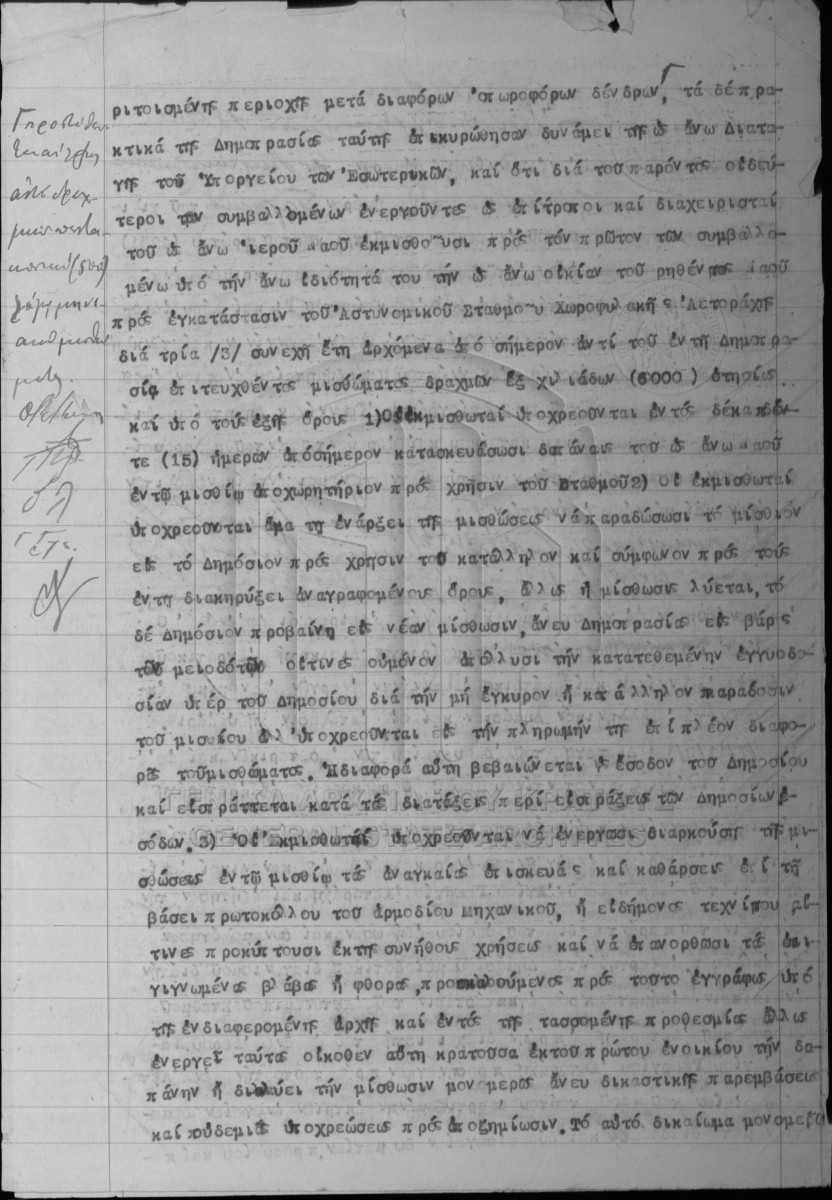 ριτοισμένης περιοχῆς μετά διαφόρων ὀπωροφόρων δένδρων, τά δέ πρα-
κτικά τῆς Δημοπρασίας ταύτης ἐπικυρώθησαν δυνάμει τῆς ὡς ἄνω Διατα-
γῆς τοῦ Ὑπουργείου τῶν Ἐσωτερικῶν, καί ὅτι διά τοῦ παρόντος οἱ δεύ-
τεροι τῶν συμβαλλομένων ἐνεργοῦντες ὡς ἐπίτροποι καί διαχειρισταί
τοῦ ὡς ἄνω ἱεροῦ Ναοῦ ἐκμισθοῦσι πρός τόν πρῶτον τῶν συμβαλλο-
μένω ὑπό τήν ἄνω ἰδιότητά του τήν ὡς ἄνω οἰκίαν τοῦ ρηθέντος Ναοῦ
πρός ἐγκατάστασιν τοῦ Ἀστυνομικοῦ Σταθμοῦ Χωροφυλακῆς Ἀετοράχης
διά τρία /3/ συνεχῆ ἔτη ἀρχόμενα ἀπό σήμερον ἀντί τοῦ ἐν τῇ Δημοπρα-
σίᾳ ἐπιτευχθέντος μισθώματος δραχμῶν ἕξ χιλιάδων (6000) ἐτησίως
καί ὑπό τούς ἑξῆς ὅρους 1) Οἱ ἐκμισθωταί ὑποχρεοῦνται ἐντός δεκαπέν-
τε (15) ἡμερῶν ἀπό σήμερον κατασκευάσωσι δαπάναις τοῦ ὡς ἄνω Ναοῦ
ἐν τῷ μισθίῳ ἀποχωρητήριον πρός χρῆσιν τοῦ Σταθμοῦ 2) Οἱ ἐκμισθωταί
ὑποχρεοῦνται ἅμα τῇ ἐνάρξει τῆς μισθώσεως νά παραδώσωσι τό μίσθιον
εἰς τό Δημόσιον πρός χρῆσιν του κατάλληλον καί σύμφωνον πρός τούς
ἐν τῇ διακηρύξει ἀναγραφομένους ὅρους, ἄλλως ἡ μίσθωσις λύεται, τό
δέ Δημόσιον προβαίνῃ εἰς νέαν μίσθωσιν, ἄνευ Δημοπρασίας εἰς βάρος
τῶν μειοδοτῶν οἵτινες οὐ μόνον ἀπόλλυσι τήν κατατεθεμένην ἐγγυοδο-
σίαν ὑπέρ τοῦ Δημοσίου διά τήν μή ἔγκυρον ἤ κατάλληλον παράδοσιν
τοῦ μισθίου ἀλλ' ὑποχρεοῦνται εἰς τήν πληρωμήν τῆς ἐπί πλέον διαφο-
ρᾶς τοῦ μισθώματος. Ἡ διαφορά αὕτη βεβαιώνεται ὡς ἔσοδον τοῦ Δημοσίου
καί εἰσπράττεται κατά τάς διατάξεις περί εἰσπράξεως τῶν Δημοσίων ἐ-
σόδων. 3) Οἱ Ἐκμισθωταί ὑποχρεοῦνται νά ἐνεργῶσι διαρκούσης τῆς μι-
σθώσεως ἐν τῷ μισθίῳ τάς ἀναγκαίας ἐπισκευάς καί καθάρσεις ἐπί τῇ
βάσει πρωτοκόλλου τοῦ ἁρμοδίου μηχανικοῦ, ἤ εἰδήμονος τεχνίτου αἵ-
τινες προκύπτουσι ἐκ τῆς συνήθους χρήσεως καί νά ἐπανορθῶσι τάς ἐπι-
γιγνωμένας βλάβας ἤ φθοράς, προσκαλούμενος πρός τοῦτο ἐγγράφως ὑπό
τῆς ἐνδιαφερομένης ἀρχῆς καί ἐντός τῆς τασσομένης προθεσμίας ἄλλως
ἐνεργεῖ ταύτας οἴκοθεν αὕτη κρατοῦσα ἐκ τοῦ πρώτου ἐνοικίου τήν δα-
πάνην ἤ διαλύει τήν μίσθωσιν μονομερῶς ἄνευ δικαστικῆς παρεμβάσεως
καί οὐδεμιᾶς ὑποχρεώσεως πρός ἀποζημίωσιν. Τό αὐτό δικαίωμα μονομερῶς